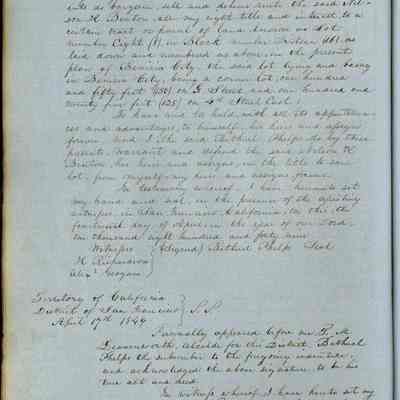 ents do bargain, sell and deliver unto the said Nel-
son H Benton, all my right title and interest to a
certain tract or parcel of land known as Lot
number Eight (8) in Block number Sixteen (16) as
laid down and numbered as above in the present
plan of Benicia City the said lot lying and being
in Benicia City, being a corner lot, one hundred
and fifty feet (150) on G Street and one hundred and
twenty five feet (125) on 4th Street East;
To have and to hold, with all its appurtenan-
ces and advantages, to himself, his heirs and assigns
forever. And I the said Bethuel Phelps do by these
presents, warrant and defend the said Nelson H
Benton, his heirs and assigns, in the title to said
lot, from myself my heirs and assigns forever.
In testimony whereof, I have hereunto set
my hand and seal, in the presence of the attesting
witnesses, in San Francisco California, on this the
fourteenth day of April, in the year of our Lord
one thousand eight hundred and forty nine
Witnesses (Signed) Bethuel Phelps Seal
H Richardson
Alexr Grogan
Territory of California
District of San Francisco S.S.
April 17th 1849
Personally appeared before me T. M
Leavenworth, Alcalde for this District, Bethuel
Phelps the subscriber to the foregoing indenture
and acknowledged the above signature to be his
true act and deed.
In witness whereof I have hereto set my